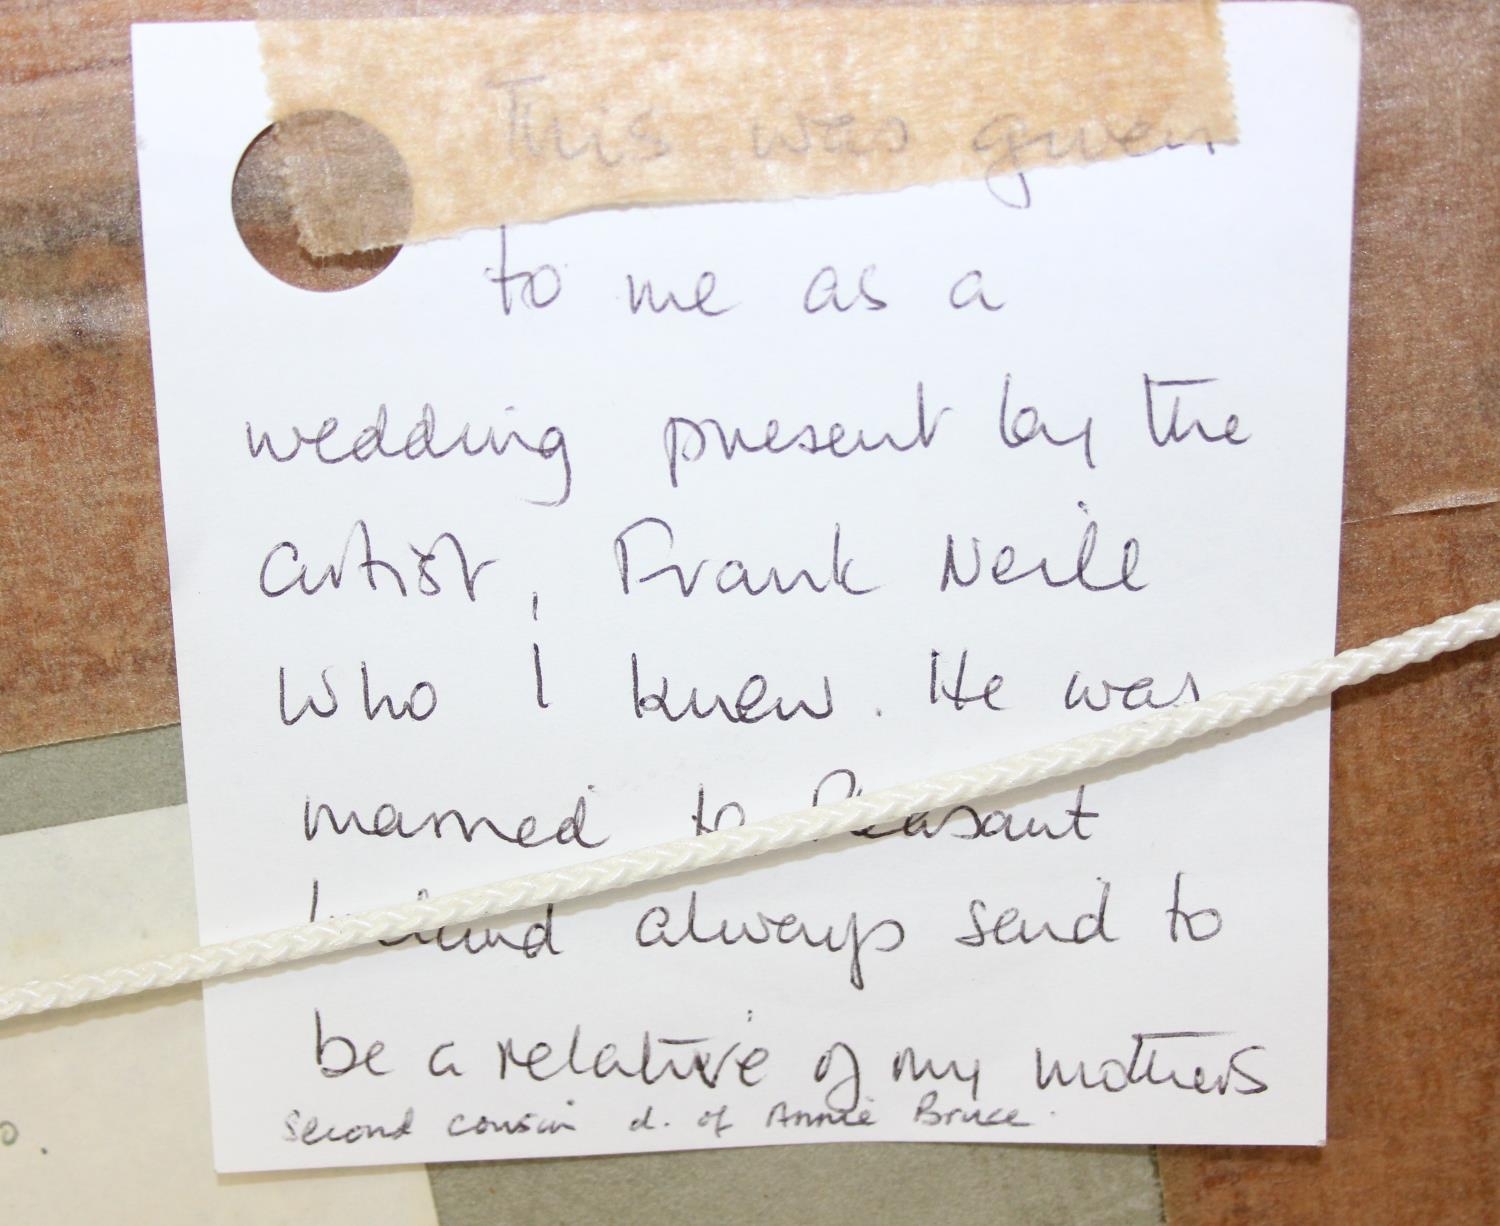 This was given
to me as a
wedding present by the
artist, Frank Neill
who I knew. He was
married to Pleasant
always said to
be a relative of my mothers
second cousin d. of Annie Bruce.